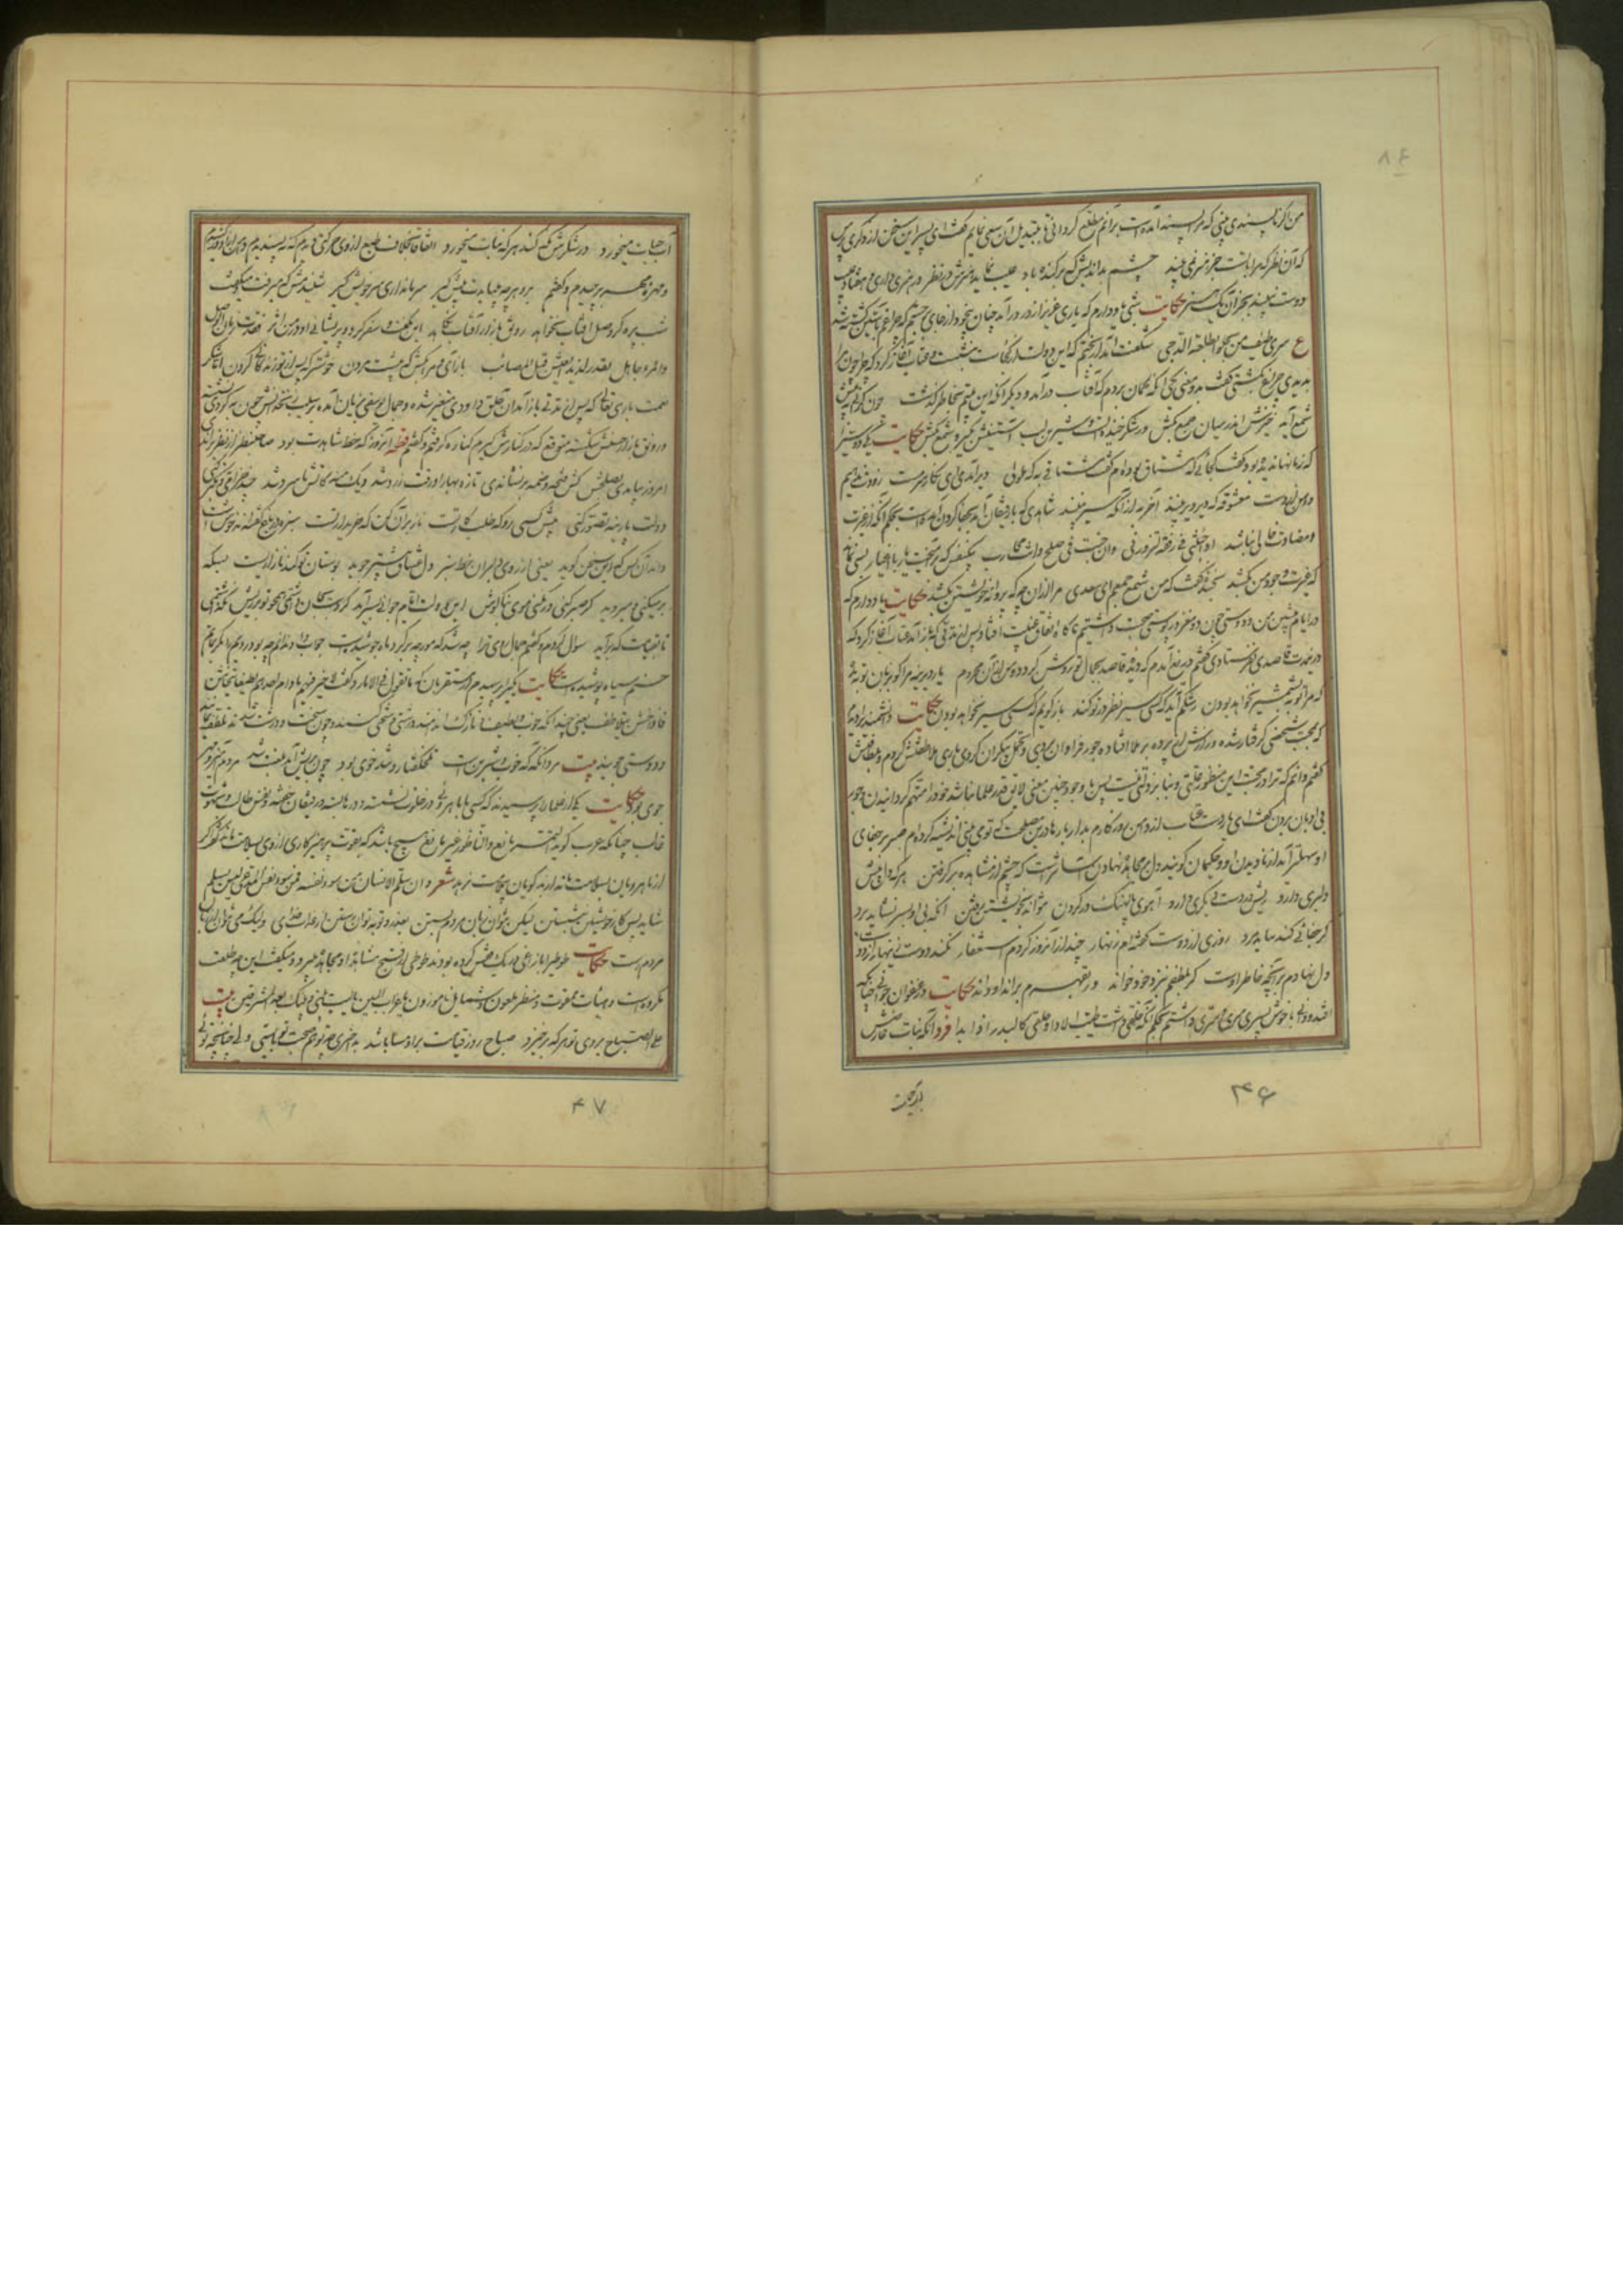 من اگر ناپسندی بینی که مرا پسند آمده است بر آنم مطلع گردانی تا بتبدیل آن سعی نمایم گفت ای پسر این سخن از دیگری پرس
که آن نظر که مرا با تست جز هنر نمی بیند چشم بداندیش که برکنده باد عیب نماید هنرش در نظر ور هنری داری و هفتاد عیب
دوست نبیند بجز آن یک هنر حکایت شبی یاد دارم که یاری عزیز از در درآمد چنان بیخود از جای برجستم که چراغم باستین کشته شد
ع سری طیف من یجلو بطلعته الدجی شگفت آمد از بختم که این دولت از کجاست بنشست و عتاب آغاز کرد که چرا چون مرا
بدیدی چراغ بکشتی گفتم بدو معنی یکی آنکه گمان بردم که آفتاب درآمد و دیگر آنکه این بیتم بخاطر گذشت چون گرانی به پیش
شمع آید خیزش اندر میان جمع بکش ور شکر خنده ایست شیرین لب آستینش بگیر و شمع بکش حکایت یکی دوستی را
که زمانها ندیده بود گفت کجائی که مشتاق بوده ام گفت مشتاقی به که ملولی دیر آمدی ای نگار سرمست زودت ندهیم
دامن از دست معشوقه که دیر دیر بینند آخر به از آنکه سیر بینند شاهدی که با رفیقان آید بجفا کردن آمده است بحکم آنکه از غیرت
و مضادت خالی نباشد اذا جئتنی فی رفقة لتزورنی و ان جئت فی صلح فانت محارب بیکنفس که برآمیخت یار با اغیار بسی نماند
که غیرت وجود من بکشد بخنده گفت که من شمع جمعم ای سعدی مرا از آن چه که پروانه خویشتن بکشد حکایت یاد دارم که
در ایام پیشین من و دوستی چون دو مغز در پوستی صحبت داشتیم ناگاه اتفاق غیبت افتاد پس از مدتی که باز آمد عتاب آغاز کرد که
درین مدت قاصدی نفرستادی گفتم دریغ آمدم که دیده قاصد بجمال تو روشن گردد و من از آن محروم یار دیرینه مرا گو بزبان توبه مده
که مرا توبه بشمشیر نخواهد بودن رشکم آید که کسی سیر نظر در تو کند باز گویم که کسی سیر نخواهد بودن حکایت دانشمندی را دیدم
که بمحبت شخصی گرفتار شده و رازش از پرده برملا افتاده جور فراوان بردی و تحمل بیکران کردی باری بلاطفتش کردم
گفتم دانم که ترا در محبت این منظور علتی و بنای بر زلتی نیست پس با وجود چنین معنی لایق قدر علما نباشد خود را متهم گردانیدن و جور
بی ادبان بردن گفت ای یار دست عتاب از دامن روزگارم بدار بارها درین مصلحت که تو می بینی اندیشه کرده ام صبر بر جفای
او سهلتر آید از نادیدن او و حکیمان گویند دل بر مجاهده نهادن آسانتر است که چشم از مشاهده برگرفتن هر که دل پیش
دلبری دارد ریش در دست دیگری دارد آهوی پالهنگ در گردن نتواند بخویشتن رفتن آنکه بی او بسر نشاید برد
گر جفائی کند بباید برد روزی از دست گفتم زنهار چند از آن روز کردم استغفار نکند دوست زینهار از دوست
دل نهادم بر آنچه خاطر اوست گر بلطفم بنزد خود خواند ور بقهرم براند او داند حکایت در عنفوان جوانی چنانکه
افتد و دانی با خوش پسری سری و سرّی داشتم بحکم آنکه حلقی داشت طیب الادا و خلقی کالبدر اذا بدا فرد آنکه نبات عارضش
۴۶
آب حیات میخورد در شکرش نگه کند هر که نبات میخورد اتفاقا بخلاف طبع از وی حرکتی دیدم که نپسندیدم دامن از او درکشیدم
و مهره مهر برچیدم و گفتم برو هر چه میبایدت پیش گیر سر ما نداری سر خویش گیر شنیدمش که میرفت و میگفت
شب پره گر وصل آفتاب نخواهد رونق بازار آفتاب نکاهد این بگفت و سفر کرد و پریشانی او در من اثر فقدت زمان الوصل
و المرء جاهل بقدر لذیذ العیش قبل المصائب باز آی و مرا بکش که پیشت مردن خوشتر که پس از تو زندگانی کردن اما بشکر
نعمت باری تعالی که پس از مدتی باز آمد آن حلق داودی متغیر شده و جمال یوسفی بزیان آمده بر سیب زنخدانش چون به گردی نشسته
و رونق بازار حسنش شکسته متوقع که در کنارش گیرم کناره گرفتم و گفتم قطعه آنروز که خط شاهدت بود صاحبنظر از نظر براندی
امروز بیامدی بصلحش کش فتحه و ضمه برنشاندی تازه بهارا ورقت زرد شد دیگ منه کاتش ما سرد شد چند خرامی و تکبر کنی
دولت پارینه تصور کنی پیش کسی رو که طلبکار تست ناز بر آن کن که خریدار تست سبزه در باغ گفته اند خوشست
داند آنکس که این سخن گوید یعنی از روی دلبران خط سبز دل عشاق بیشتر جوید بوستان تو گندنا زاریست بسکه
بر میکنی و میروید گر صبر کنی ور نکنی موی بناگوش این دولت ایام جوانی بسر آید گر دست بجان داشتمی همچو تو بر ریش نگذاشتمی
تا بقیامت که برآید سؤال کردم و گفتم جمال روی ترا چه شد که مورچه بر گرد ماه جوشیدست جواب داد ندانم چه بود رویم را مگر بماتم
حسنم سیاه پوشیده است حکایت یکی را پرسیدم از مستعربان که ما تقول فی الامارد گفت لا خیر فیهم ما دام احدهم لطیفا یتخاشن
فاذا خشن یتلاطف یعنی چندانکه خوب و لطیف و نازک اند درشتی و سختی کنند و چون سخت و درشت شدند تلطف کنند
و دوستی جویند بیت امرد آنگه که خوب و شیرینست تلخ گفتار و تند خوی بود چون بریش آمد بلعنت شد مردم آمیز و مهر
جوی بود حکایت یکی از علما را پرسیدند که کسی با ماهروئی در خلوت نشسته و درها بسته و رفیقان خفته و نفس طالب و شهوت
غالب چنانکه عرب گوید التمر یانع و الناطور غیر مانع هیچ باشد که بقوت پرهیزکاری از وی بسلامت بماند گفت اگر
از ماهرویان بسلامت ماند از بدگویان بی ملامت نرهد شعر و ان سلم الانسان من سوء نفسه فمن سوء ظن المدعی لیس یسلم
شاید پس کار خویشتن بنشستن لیکن نتوان زبان مردم بستن
مردم است حکایت طوطی را با زاغی در یک قفس کرده بودند طوطی از قبح مشاهده او مجاهده میبرد و میگفت این چه طلعت
مکروه است و هیأت ممقوت و منظر ملعون و شمایل ناموزون یا غراب البین یا لیت بینی و بینک بعد المشرقین بیت
علی الصباح بروی تو هر که برخیزد صباح روز قیامت بر او مسا باشد بد اختری چو تو هم صحبت تو بایستی ولی چنانچه توئی
۴۷